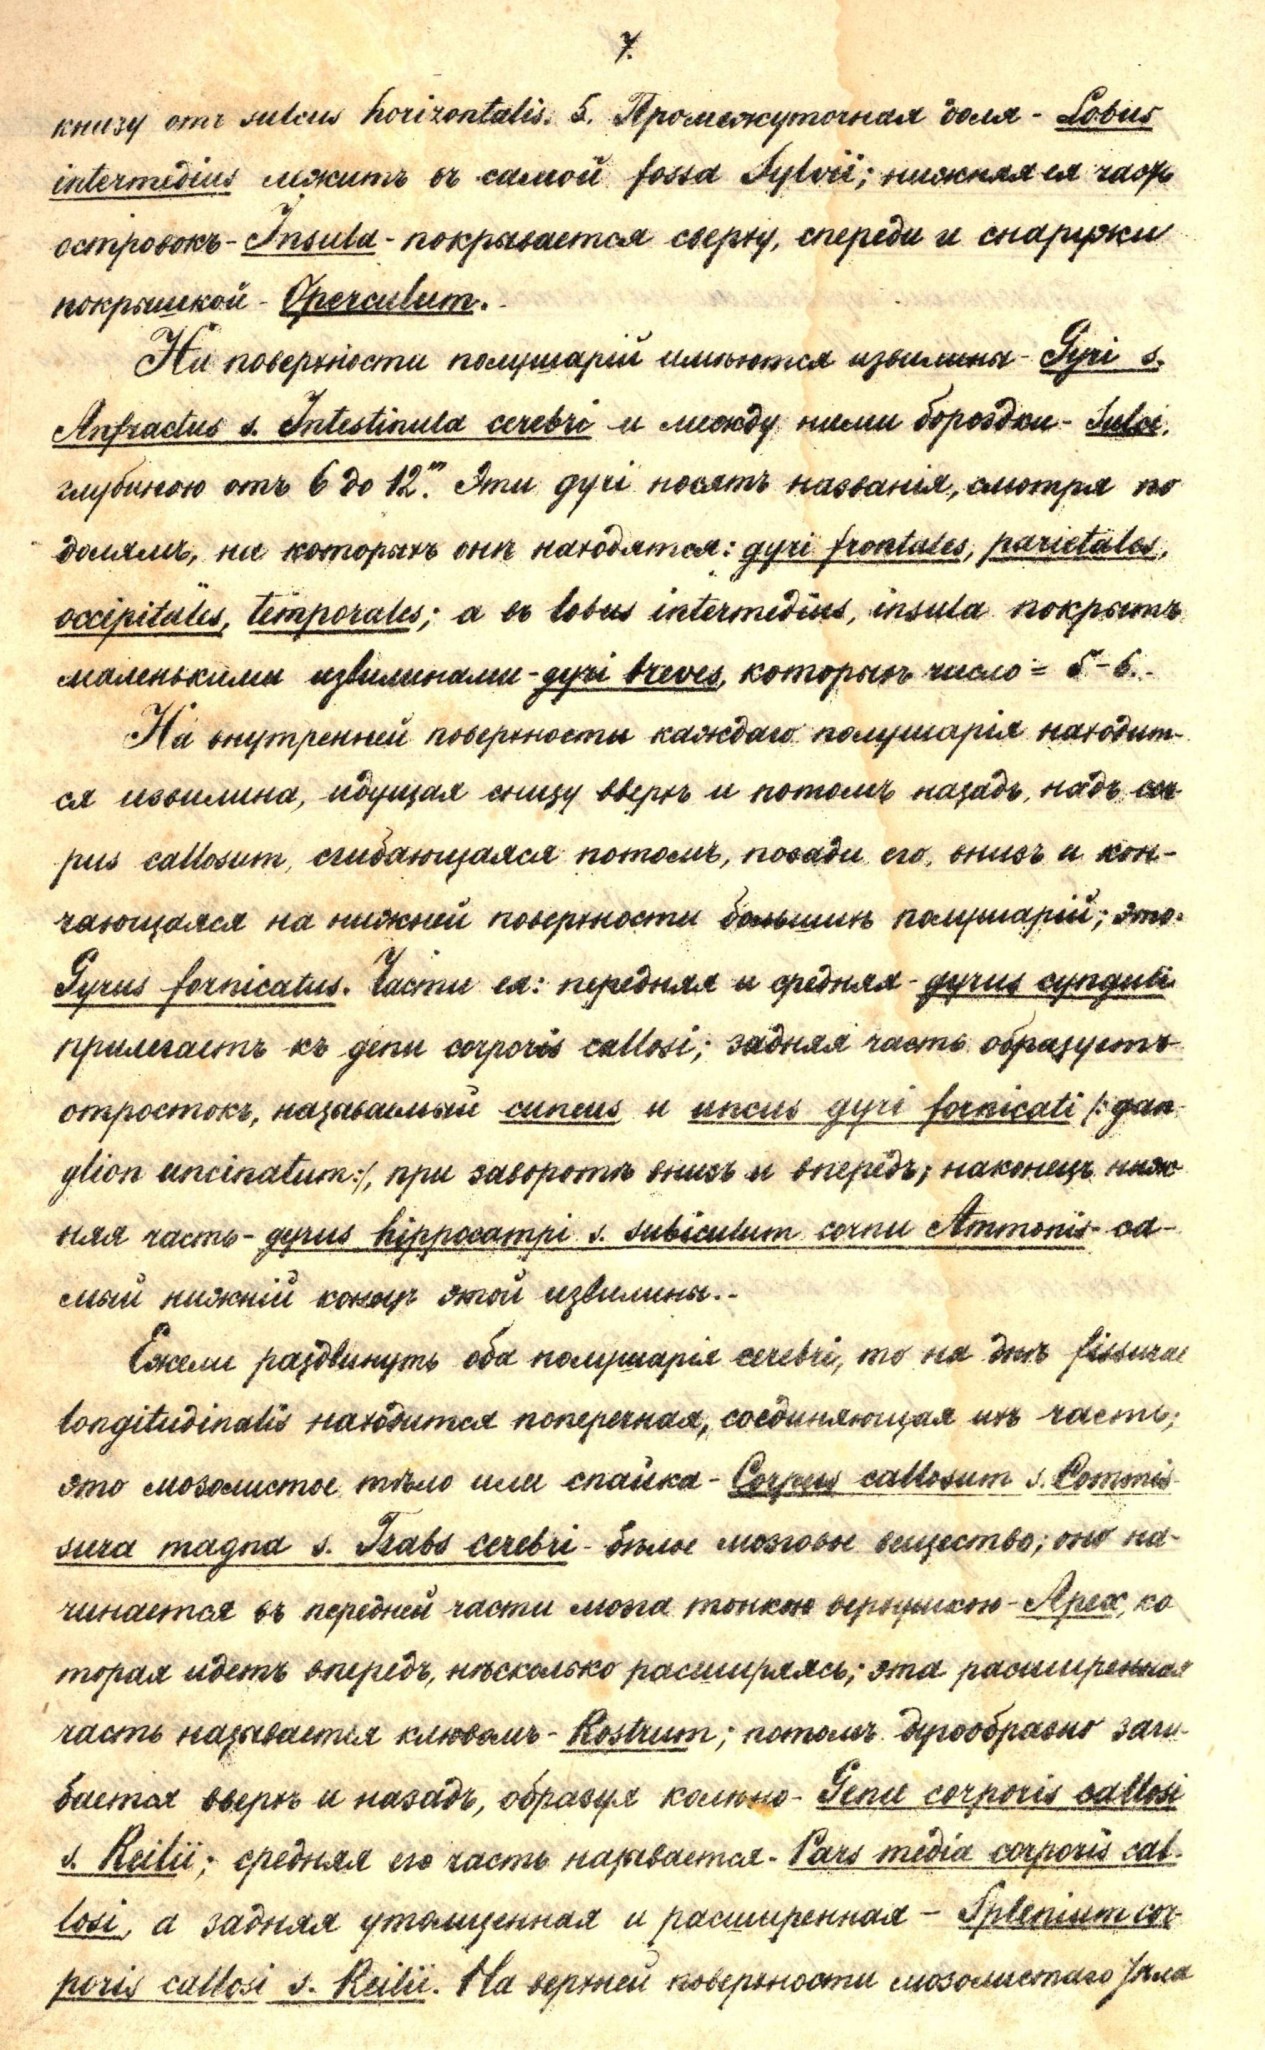 7.
книзу отъ sulcus horizontalis. 5. Промежуточная доля - Lobus
intermedius лежитъ въ самой fossa Sylvii; нижняя ея часть
островокъ - Insula - покрывается сверху, спереди и снаружи
покрышкой - Operculum.
На поверхности полушарій имѣются извилины - Gyri s.
Anfractus s. Intestinula cerebri и между ними бороздки - Sulci,
глубиною отъ 6 до 12'''. Эти gyri носятъ названія, смотря по
долямъ, на которыхъ онѣ находятся: gyri frontales, parietales,
occipitales, temporales; а въ lobus intermedius, insula покрытъ
маленькими извилинами - gyri breves, которыхъ число = 5-6.-
На внутренней поверхности каждаго полушарія находит-
ся извилина, идущая снизу вверхъ и потомъ назадъ, надъ cor
pus callosum, сгибающаяся потомъ, позади его, внизъ и кон-
чающаяся на нижней поверхности большихъ полушарій; это-
Gyrus fornicatus. Части ея: передняя и средняя - gyrus cynguli
прилегаетъ къ genu corporis callosi; задняя часть образуетъ
отростокъ, называемый cuneus и uncus gyri fornicati /:gan
glion uncinatum:/, при заворотѣ внизъ и впередъ; наконецъ ниж
няя часть - gyrus hippocampi s. subiculum cornu Ammonis - са-
мый нижній конецъ этой извилины.-
Ежели раздвинуть оба полушарія cerebri, то на днѣ fissurae
longitudinalis находится поперечная, соединяющая ихъ часть;
это мозолистое тѣло или спайка - Corpus callosum s. Commis
sura magna s. Trabs cerebri - бѣлое мозговое вещество; оно на-
чинается въ передней части мозга тонкою верхушкою - Apex, ко
торая идетъ впередъ, нѣсколько расширяясь; эта расширенная
часть называется клювомъ - Rostrum; потомъ дугообразно заги-
бается вверхъ и назадъ, образуя колѣно - Genu corporis callosi
s. Reilii; средняя его часть называется - Pars media corporis cal-
losi, а задняя утолщенная и расширенная - Splenium cor-
poris callosi s. Reilii. На верхней поверхности мозолистаго тѣла